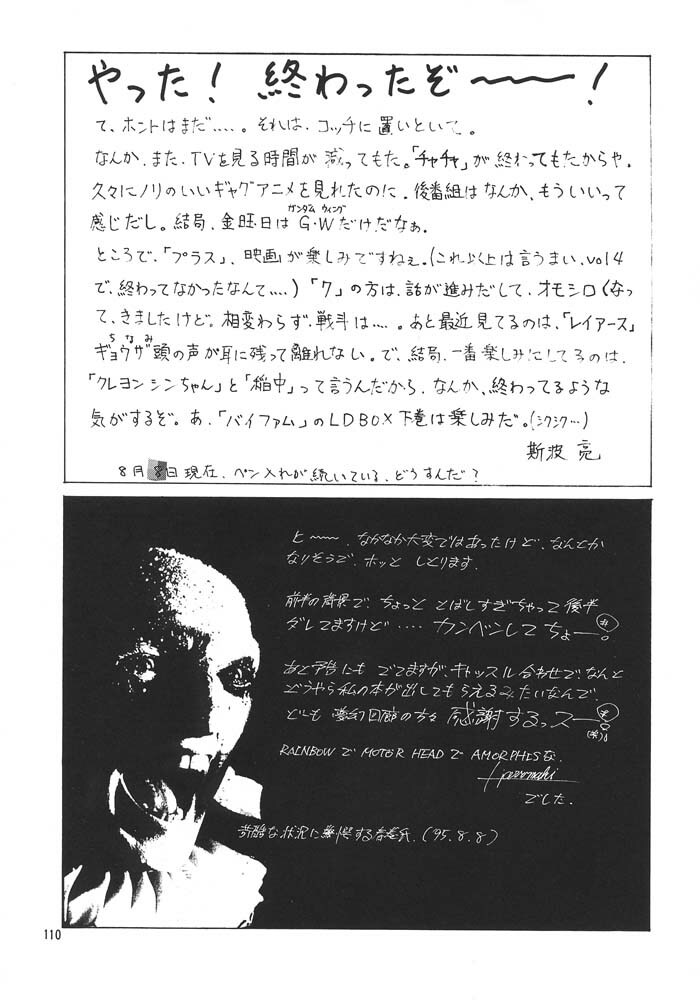 やった! 終わったぞ〜〜!
て、ホントはまだ……。それは、コッチに置いといて。
なんか、また、TVを見る時間が減ってもた。「チャチャ」が終わってもたからや。
久々にノリのいいギャグアニメを見れたのに、後番組はなんか、もういいって
ガンダム ウィング
感じだし。結局、金曜日はG・Wだけだなぁ。
ところで、「プラス」、映画が楽しみですねぇ。(これ以上は言うまい、vol4
で、終わってなかったなんて…。)「7」の方は、話が進みだして、オモシロくなっ
て、きましたけど。相変わらず、戦斗は…。あと最近見てるのは、「レイアース」
ちなみ
ギョウザ頭の声が耳に残って離れない。で、結局、一番楽しみにしてるのは、
「クレヨンシンちゃん」と「稲中」って言うんだから、なんか、終わってるような
気がするぞ。あ、「バイファム」のLDBOX下巻は楽しみだ。(シクシク…)
斯波 亮
8月8日現在、ペン入れが続いている、どうすんだ?
ヒ〜〜、なかなか大変ではあったけど、なんとか
なりそうで、ホッと しとります。
前半の背景で、ちょっと とばしすぎちゃって後半
ダレてますけど…… カンベンしてちょー。
あと予告にも でてますが、キャッスル合わせで、なんと
どうやら私の本が出してもらえるみたいなんで、
どーも 夢幻回廊の方々 感謝するっスー。
(笑)
RAINBOW で MOTOR HEAD で AMORPHIS な
でした。
苛酷な状況に する 氏. (95.8.8)
110